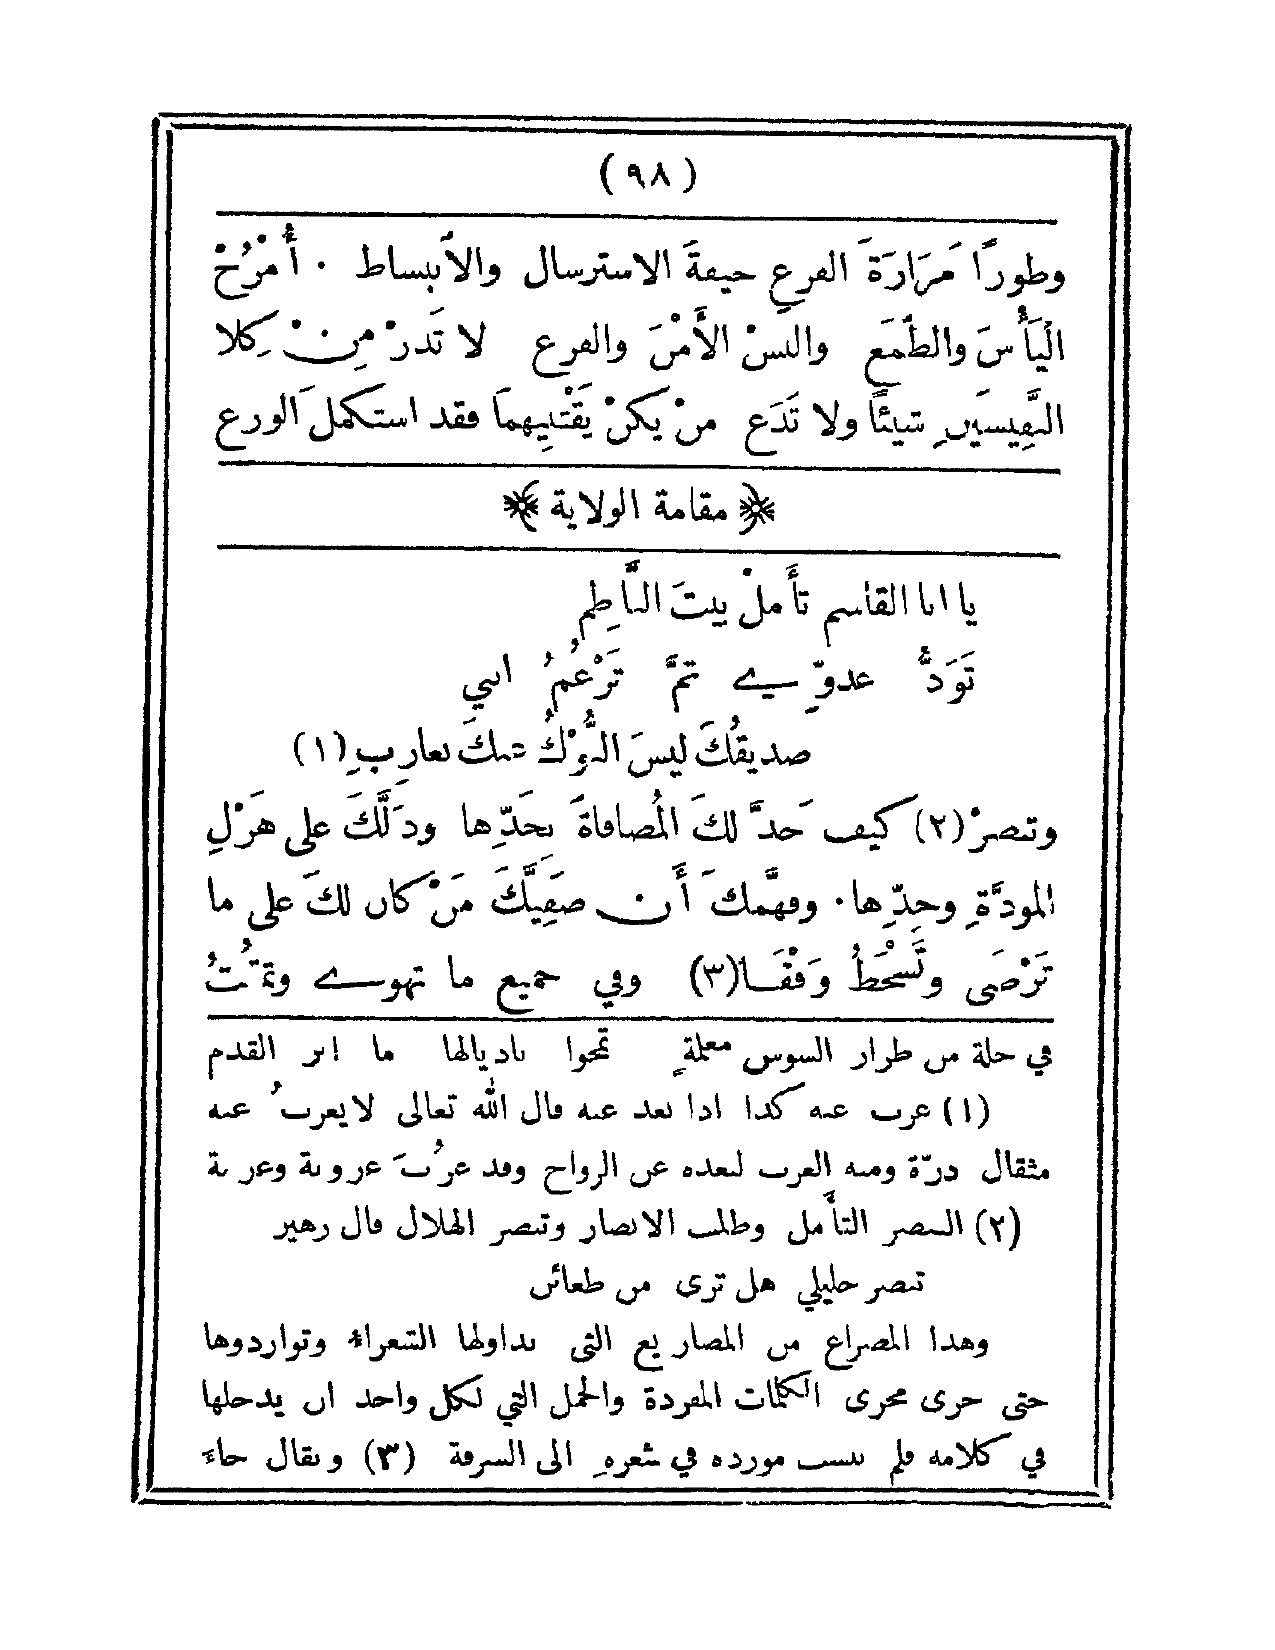 ( ٩٨ )
وطورًا مَرَارَةَ الفزعِ خيفةَ الاسترسالِ والاَنبساط . أُمْزُجْ
الْيَأْسَ والطَّمَعَ والبسْ الأَمْنَ والفزعَ لا تَدَرْ مِنْ كِلا
النَّفِيسَيْنِ شيئًا ولا تَدَع مَنْ يكنْ يَقْتَنِيهِمَا فقد استكملَ الورع
﴿ مقامة الولاية ﴾
يا ابا القاسمِ تأَملْ بيتَ النَّاظِمِ
تَوَدُّ عدوِّي ثمَّ تَزْعُمُ انني
صديقُكَ ليسَ النُّوْكُ عنكَ بعازِبِ (١)
وتبصرْ (٢) كيف حَدَّ لكَ المُصافاةَ بحَدِّها ودَلَّكَ على هَزْلِ
المودَّةِ وجِدِّها . وفهَّمكَ أَن صَفِيَّكَ مَنْ كان لكَ على ما
تَرْضَى وتَسْخَطُ وَفْقَا (٣) وفي جميع ما تهوى وتمقُتُ
في حلة من طراز السوس معلمةٍ تمحوا باذيالها ما اثر القدم
(١) عزب عنه كذا اذا بعد عنه قال الله تعالى لا يعزبُ عنه
مثقال ذرّة ومنه العزب لبعده عن الزواج وقد عزُبَ عزوبة وعزبة
(٢) التبصر التأمل وطلب الابصار وتبصر الهلال قال زهير
تبصر خليلي هل ترى من ظعائن
وهذا المصراع من المصاريع التى تداولها الشعراء وتواردوها
حتى جرى مجرى الكلمات المفردة والجمل التي لكل واحد ان يدخلها
في كلامه فلم ينسب مورده في شعرهِ الى السرقة (٣) ويقال جاء